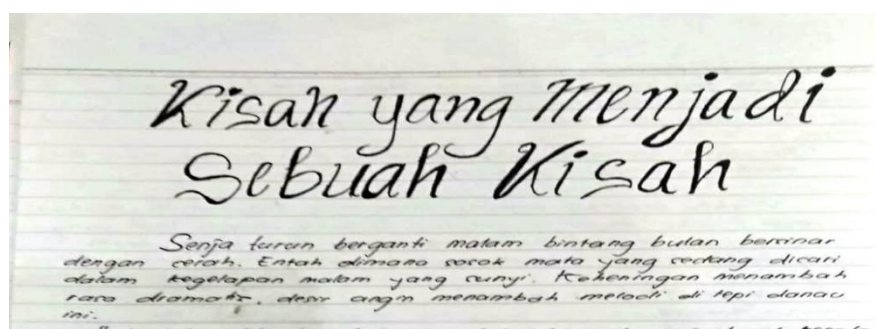 Kisah yang Menjadi
Sebuah Kisah
Senja turun berganti malam bintang bulan bersinar
dengan cerah. Entah dimana sosok mata yang sedang dicari
dalam kegelapan malam yang sunyi. Keheningan menambah
rasa dramatis, desir angin menambah melodi di tepi danau
ini.